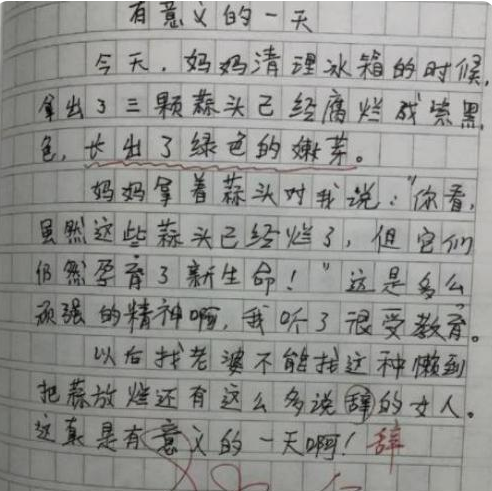 有意义的一天
今天,妈妈清理冰箱的时候,
拿出了三颗蒜头已经腐烂成紫黑
色,长出了绿色的嫩芽。
妈妈拿着蒜头对我说:“你看,
虽然这些蒜头已经烂了,但它们
仍然孕育了新生命!”这是多么
顽强的精神啊,我听了很受教育。
以后找老婆不能找这种懒到
把蒜放烂还有这么多说辞的女人。
这真是有意义的一天啊!辞